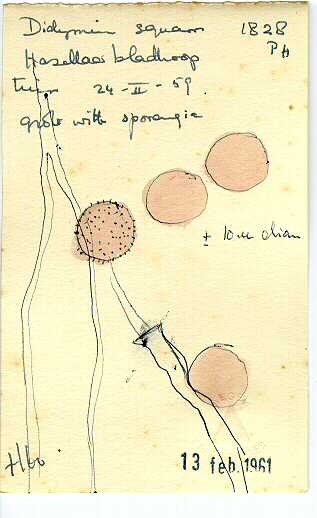 Didymium squam 1828
Hazellaar bladhoop Ph
tuin 24-II-59.
grow with sporangia
± 10 u diam
Hbo
13 feb. 1961